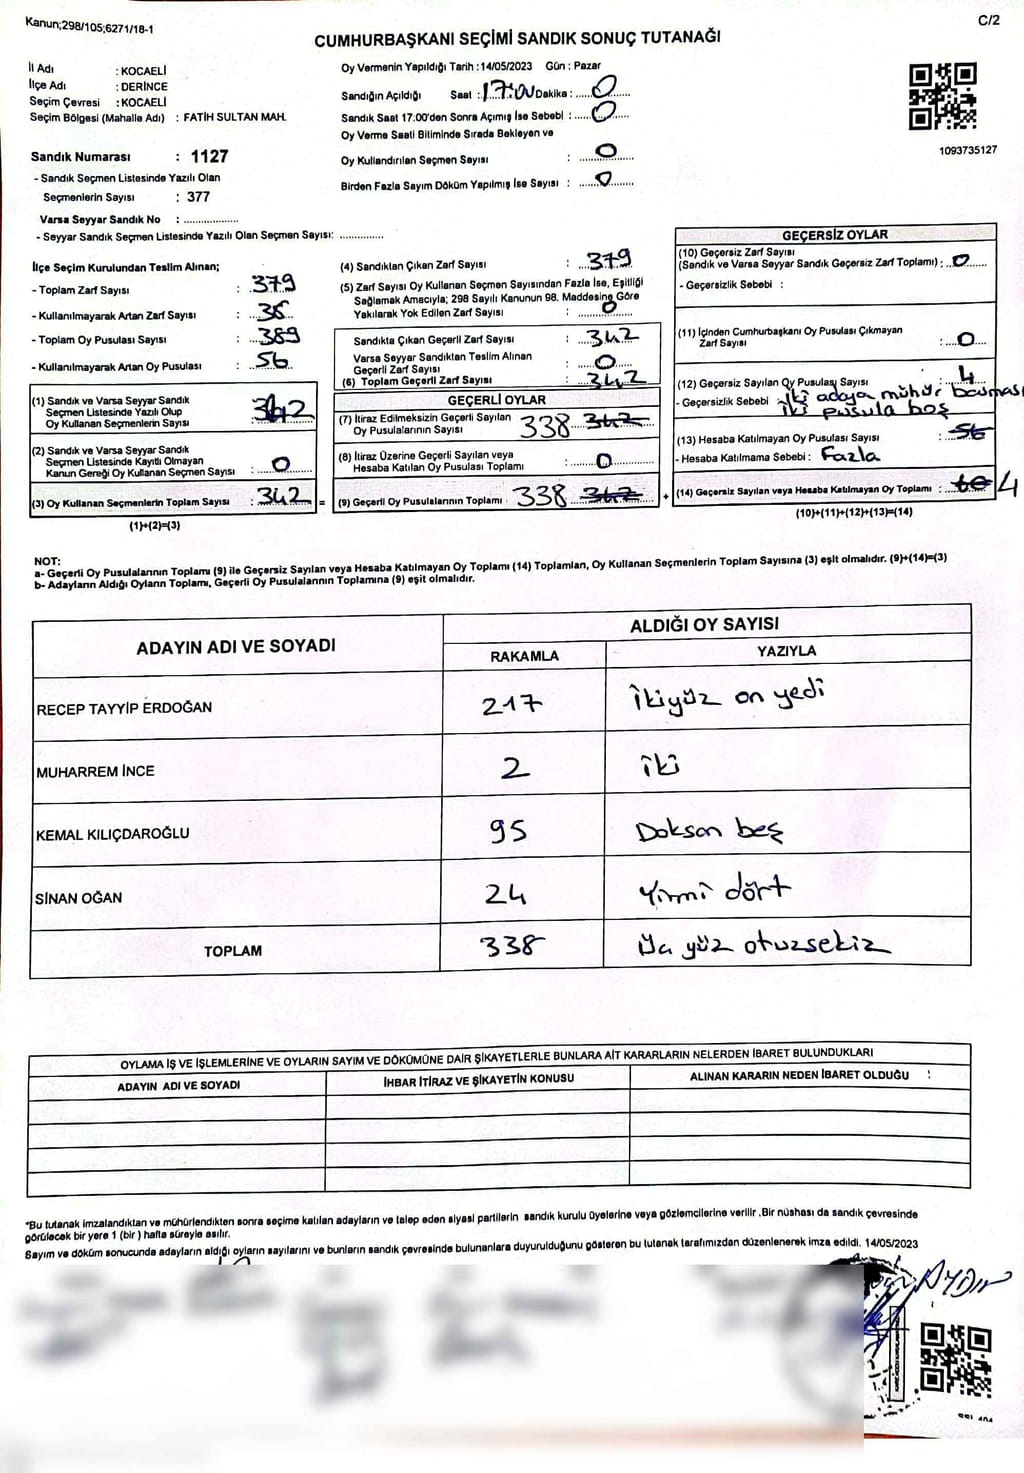 Kanun;298/105;6271/18-1
C/2
CUMHURBAŞKANI SEÇİMİ SANDIK SONUÇ TUTANAĞI
İl Adı : KOCAELİ
İlçe Adı : DERİNCE
Seçim Çevresi : KOCAELİ
Seçim Bölgesi (Mahalle Adı) : FATİH SULTAN MAH.
Sandık Numarası : 1127
- Sandık Seçmen Listesinde Yazılı Olan
Seçmenlerin Sayısı : 377
Varsa Seyyar Sandık No : ..................
- Seyyar Sandık Seçmen Listesinde Yazılı Olan Seçmen Sayısı: ..............
Oy Vermenin Yapıldığı Tarih :14/05/2023 Gün : Pazar
Sandığın Açıldığı Saat : 17:00 Dakika : 0
Sandık Saat 17:00'den Sonra Açımış İse Sebebi : 0
Oy Verme Saati Bitiminde Sırada Bekleyen ve
Oy Kullandırılan Seçmen Sayısı : 0
Birden Fazla Sayım Döküm Yapılmış İse Sayısı : 0
1093735127
İlçe Seçim Kurulundan Teslim Alınan;
- Toplam Zarf Sayısı : 379
- Kullanılmayarak Artan Zarf Sayısı : 36
- Toplam Oy Pusulası Sayısı : 389
- Kullanılmayarak Artan Oy Pusulası : 56
(1) Sandık ve Varsa Seyyar Sandık
Seçmen Listesinde Yazılı Olup
Oy Kullanan Seçmenlerin Sayısı 342
(2) Sandık ve Varsa Seyyar Sandık
Seçmen Listesinde Kayıtlı Olmayan
Kanun Gereği Oy Kullanan Seçmen Sayısı : 0
(3) Oy Kullanan Seçmenlerin Toplam Sayısı : 342 =
(1)+(2)=(3)
(4) Sandıktan Çıkan Zarf Sayısı : 379
(5) Zarf Sayısı Oy Kullanan Seçmen Sayısından Fazla İse, Eşitliği
Sağlamak Amacıyla; 298 Sayılı Kanunun 98. Maddesine Göre
Yakılarak Yok Edilen Zarf Sayısı : 0
Sandıkta Çıkan Geçerli Zarf Sayısı : 342
Varsa Seyyar Sandıktan Teslim Alınan
Geçerli Zarf Sayısı : 0
(6) Toplam Geçerli Zarf Sayısı : 342
GEÇERLİ OYLAR
(7) İtiraz Edilmeksizin Geçerli Sayılan
Oy Pusulalarının Sayısı 338 342
(8) İtiraz Üzerine Geçerli Sayılan veya
Hesaba Katılan Oy Pusulası Toplamı : 0
(9) Geçerli Oy Pusulalarının Toplamı 338 342 +
GEÇERSİZ OYLAR
(10) Geçersiz Zarf Sayısı
(Sandık ve Varsa Seyyar Sandık Geçersiz Zarf Toplamı) : 0
- Geçersizlik Sebebi :
(11) İçinden Cumhurbaşkanı Oy Pusulası Çıkmayan
Zarf Sayısı : 0
(12) Geçersiz Sayılan Oy Pusulası Sayısı : 4
- Geçersizlik Sebebi İki adaya mühür basması
İki pusula boş
(13) Hesaba Katılmayan Oy Pusulası Sayısı : 56
- Hesaba Katılmama Sebebi : Fazla
(14) Geçersiz Sayılan veya Hesaba Katılmayan Oy Toplamı : 60 4
(10)+(11)+(12)+(13)=(14)
NOT:
a- Geçerli Oy Pusulalarının Toplamı (9) ile Geçersiz Sayılan veya Hesaba Katılmayan Oy Toplamı (14) Toplamları, Oy Kullanan Seçmenlerin Toplam Sayısına (3) eşit olmalıdır. (9)+(14)=(3)
b- Adayların Aldığı Oyların Toplamı, Geçerli Oy Pusulalarının Toplamına (9) eşit olmalıdır.
ADAYIN ADI VE SOYADI
ALDIĞI OY SAYISI
RAKAMLA YAZIYLA
RECEP TAYYİP ERDOĞAN 217 İkiyüz on yedi
MUHARREM İNCE 2 İki
KEMAL KILIÇDAROĞLU 95 Doksan beş
SİNAN OĞAN 24 Yirmi dört
TOPLAM 338 Üç yüz otuzsekiz
OYLAMA İŞ VE İŞLEMLERİNE VE OYLARIN SAYIM VE DÖKÜMÜNE DAİR ŞİKAYETLERLE BUNLARA AİT KARARLARIN NELERDEN İBARET BULUNDUKLARI
ADAYIN ADI VE SOYADI İHBAR İTİRAZ VE ŞİKAYETİN KONUSU ALINAN KARARIN NEDEN İBARET OLDUĞU
*Bu tutanak imzalandıktan ve mühürlendikten sonra seçime katılan adayların ve talep eden siyasi partilerin sandık kurulu üyelerine veya gözlemcilerine verilir .Bir nüshası da sandık çevresinde
görülecek bir yere 1 (bir ) hafta süreyle asılır.
Sayım ve döküm sonucunda adayların aldığı oyların sayılarını ve bunların sandık çevresinde bulunanlara duyurulduğunu gösteren bu tutanak tarafımızdan düzenlenerek imza edildi. 14/05/2023
AYDIN